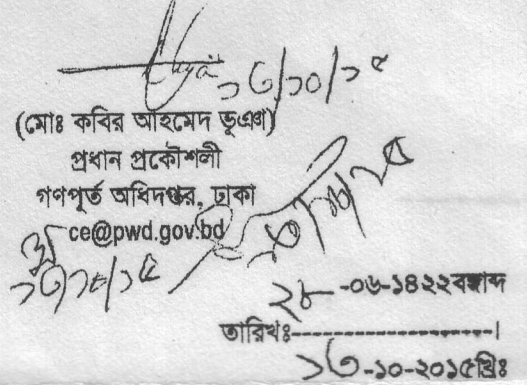 ১৩/১০/১৫
(মোঃ কবির আহমেদ ভূঞা)
প্রধান প্রকৌশলী
গণপূর্ত অধিদপ্তর, ঢাকা
ce@pwd.gov.bd
১৩/১০/১৫
২৮-০৬-১৪২২বঙ্গাব্দ
তারিখঃ-------------------।
১৩-১০-২০১৫খ্রিঃ